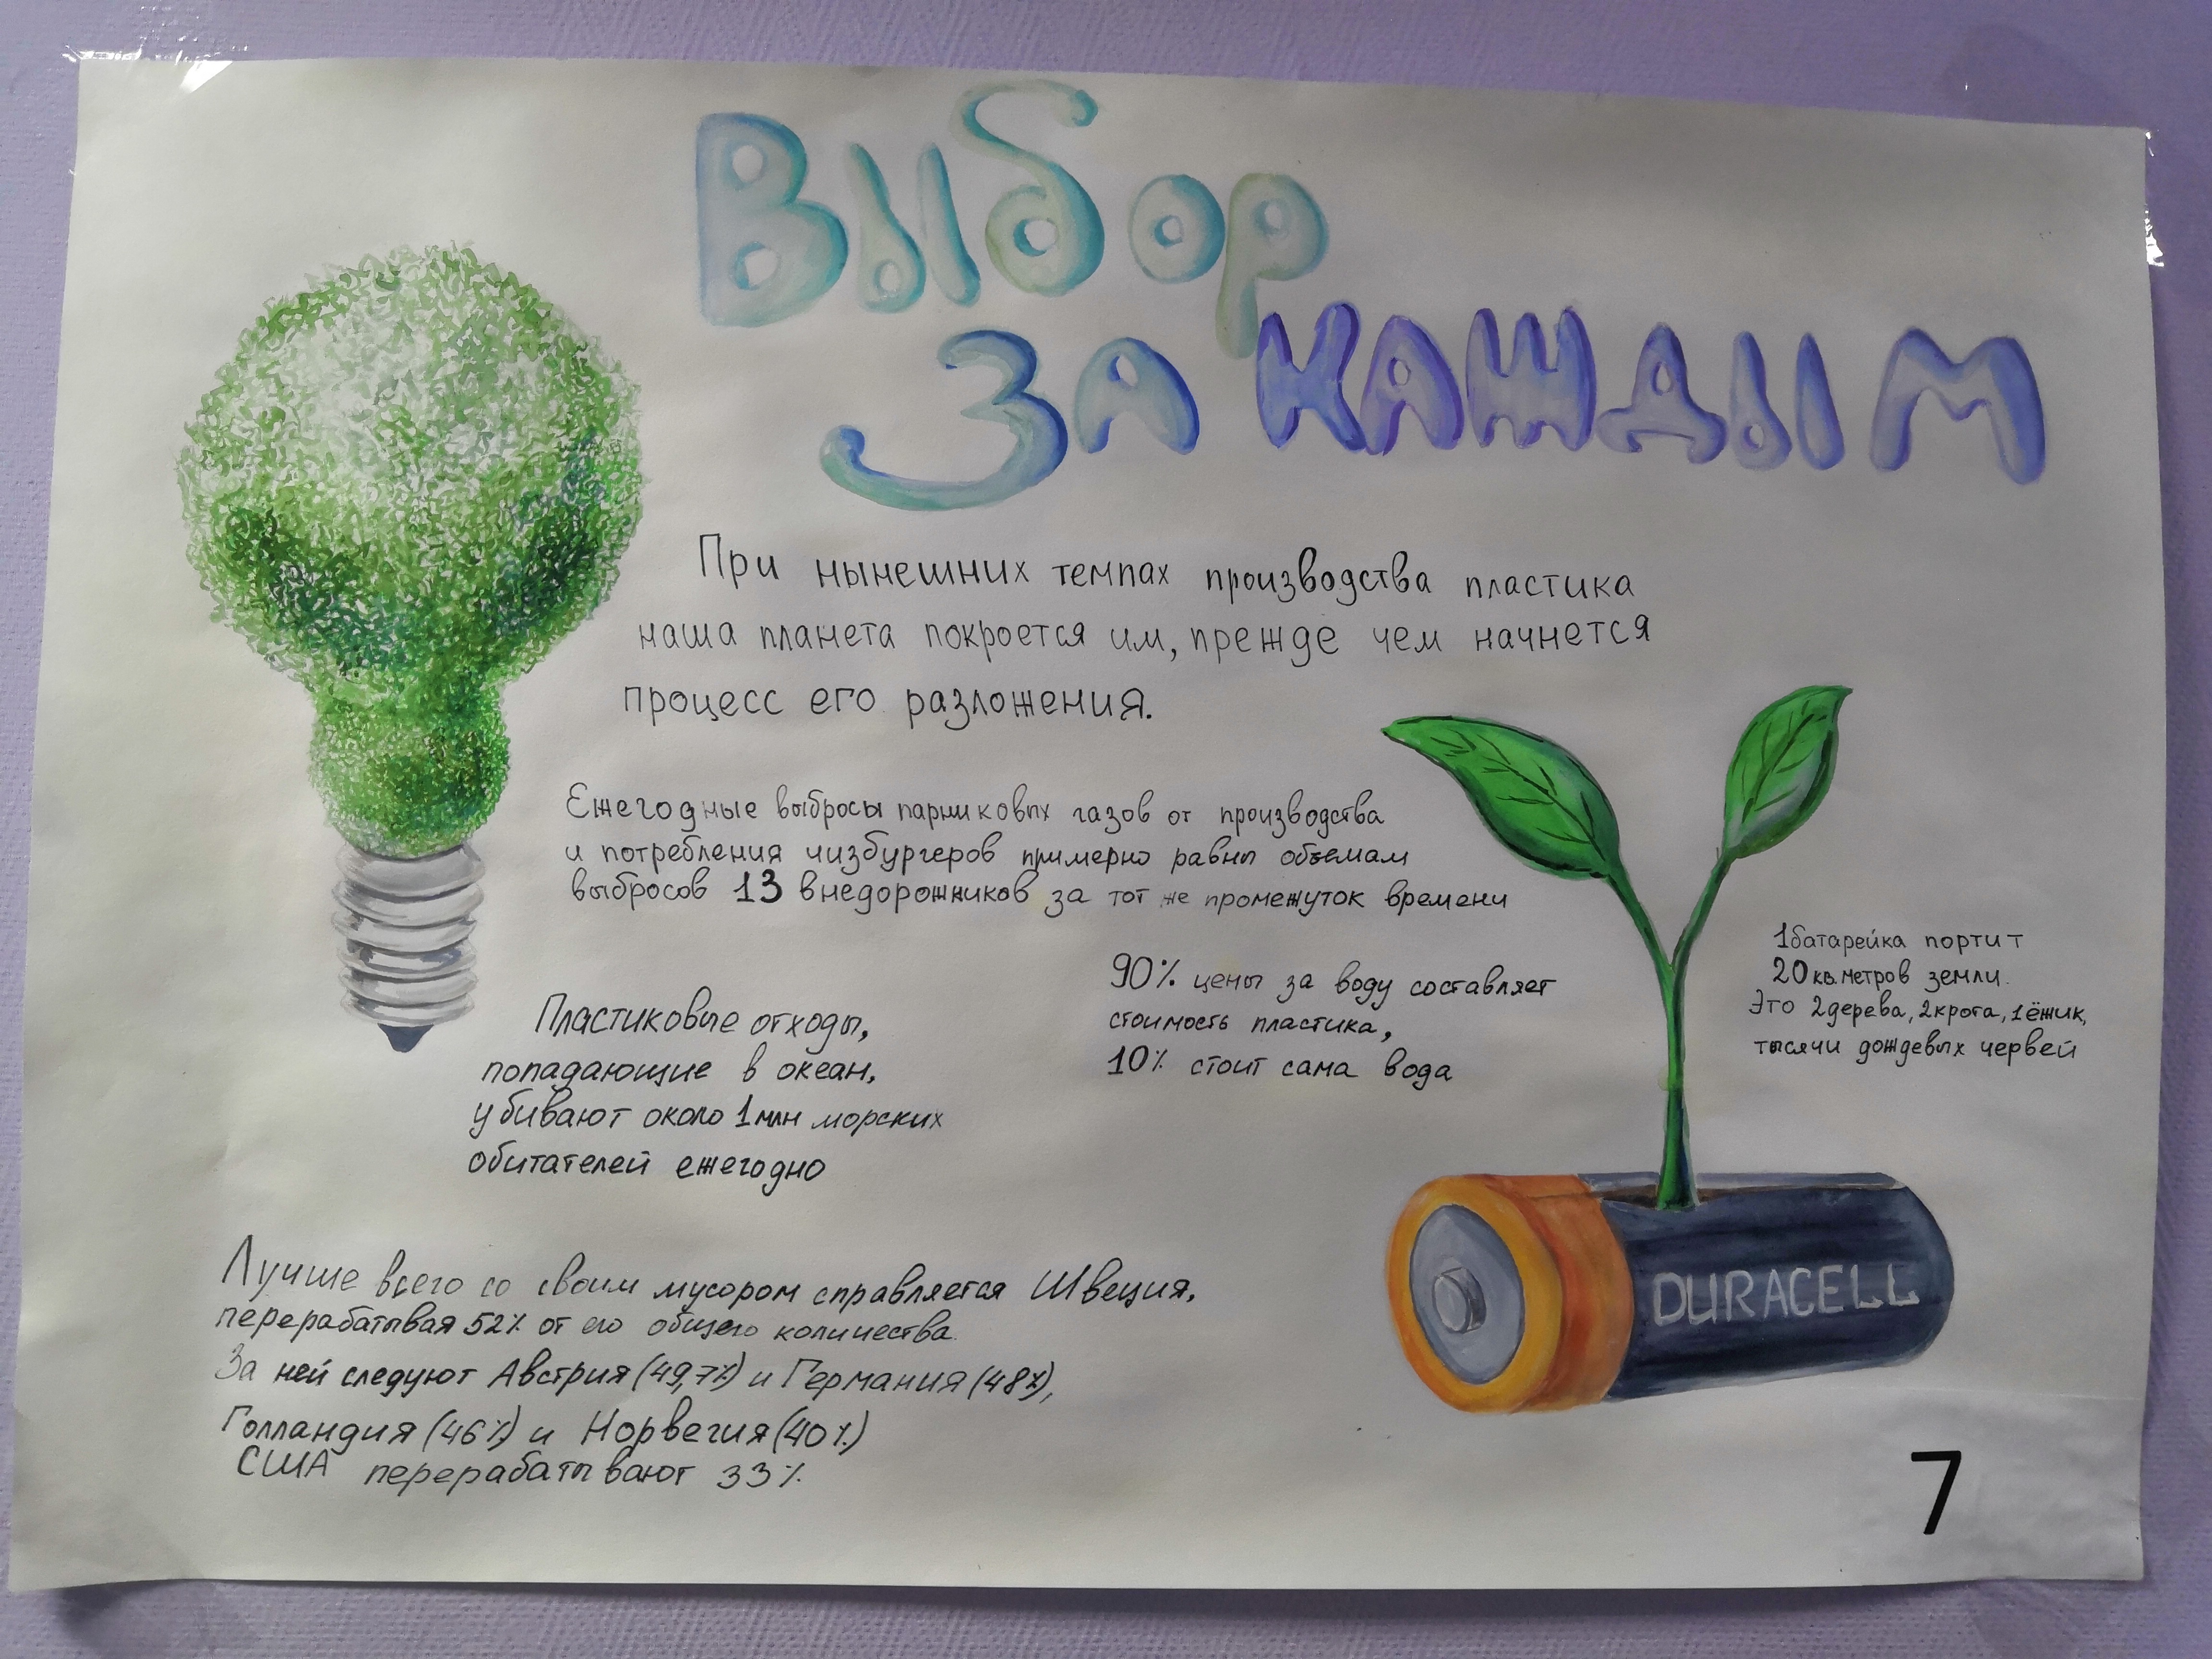 Выбор
за каждым
При нынешних темпах производства пластика
наша планета покроется им, прежде чем начнется
процесс его разложения.
Ежегодные выбросы парниковых газов от производства
и потребления чизбургеров примерно равны объемам
выбросов 13 внедорожников за тот же промежуток времени
90% цены за воду составляет
стоимость пластика,
10% стоит сама вода
1 батарейка портит
20 кв. метров земли.
Это 2 дерева, 2 крота, 1 ёжик,
тысячи дождевых червей
Пластиковые отходы,
попадающие в океан,
убивают около 1 млн морских
обитателей ежегодно
DURACELL
Лучше всего со своим мусором справляется Швеция,
перерабатывая 52% от его общего количества.
За ней следуют Австрия (49,7%) и Германия (48%),
Голландия (46%) и Норвегия (40%)
США перерабатывают 33%
7